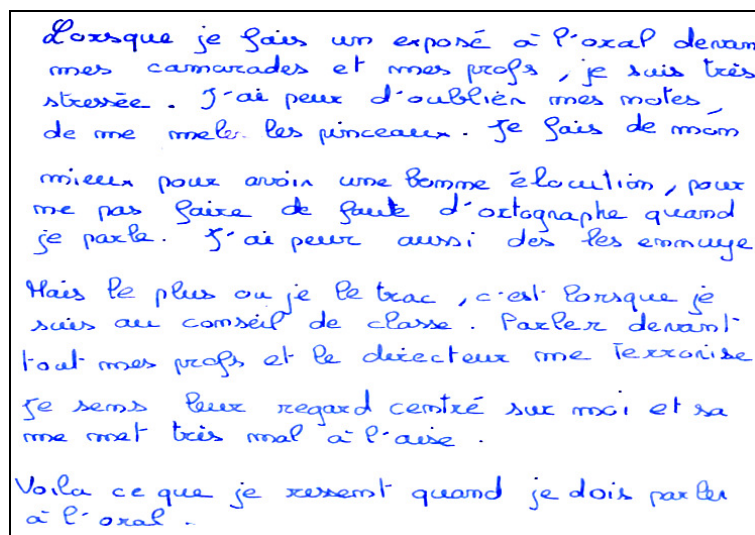 Lorsque je fais un exposé à l'oral devan
mes camarades et mes profs, je suis très
stressée. J'ai peur d'oublier mes notes,
de me meler les pinceaux. Je fais de mon
mieux pour avoir une bonne élocution, pour
ne pas faire de faute d'ortographe quand
je parle. J'ai peur aussi des les ennuye
Mais le plus ou je le trac, c'est lorsque je
suis au conseil de classe. Parler devant
tout mes profs et le directeur me terrorise
Je sens leur regard centré sur moi et sa
me met très mal à l'aise.
Voila ce que je ressent quand je dois parler
à l'oral.